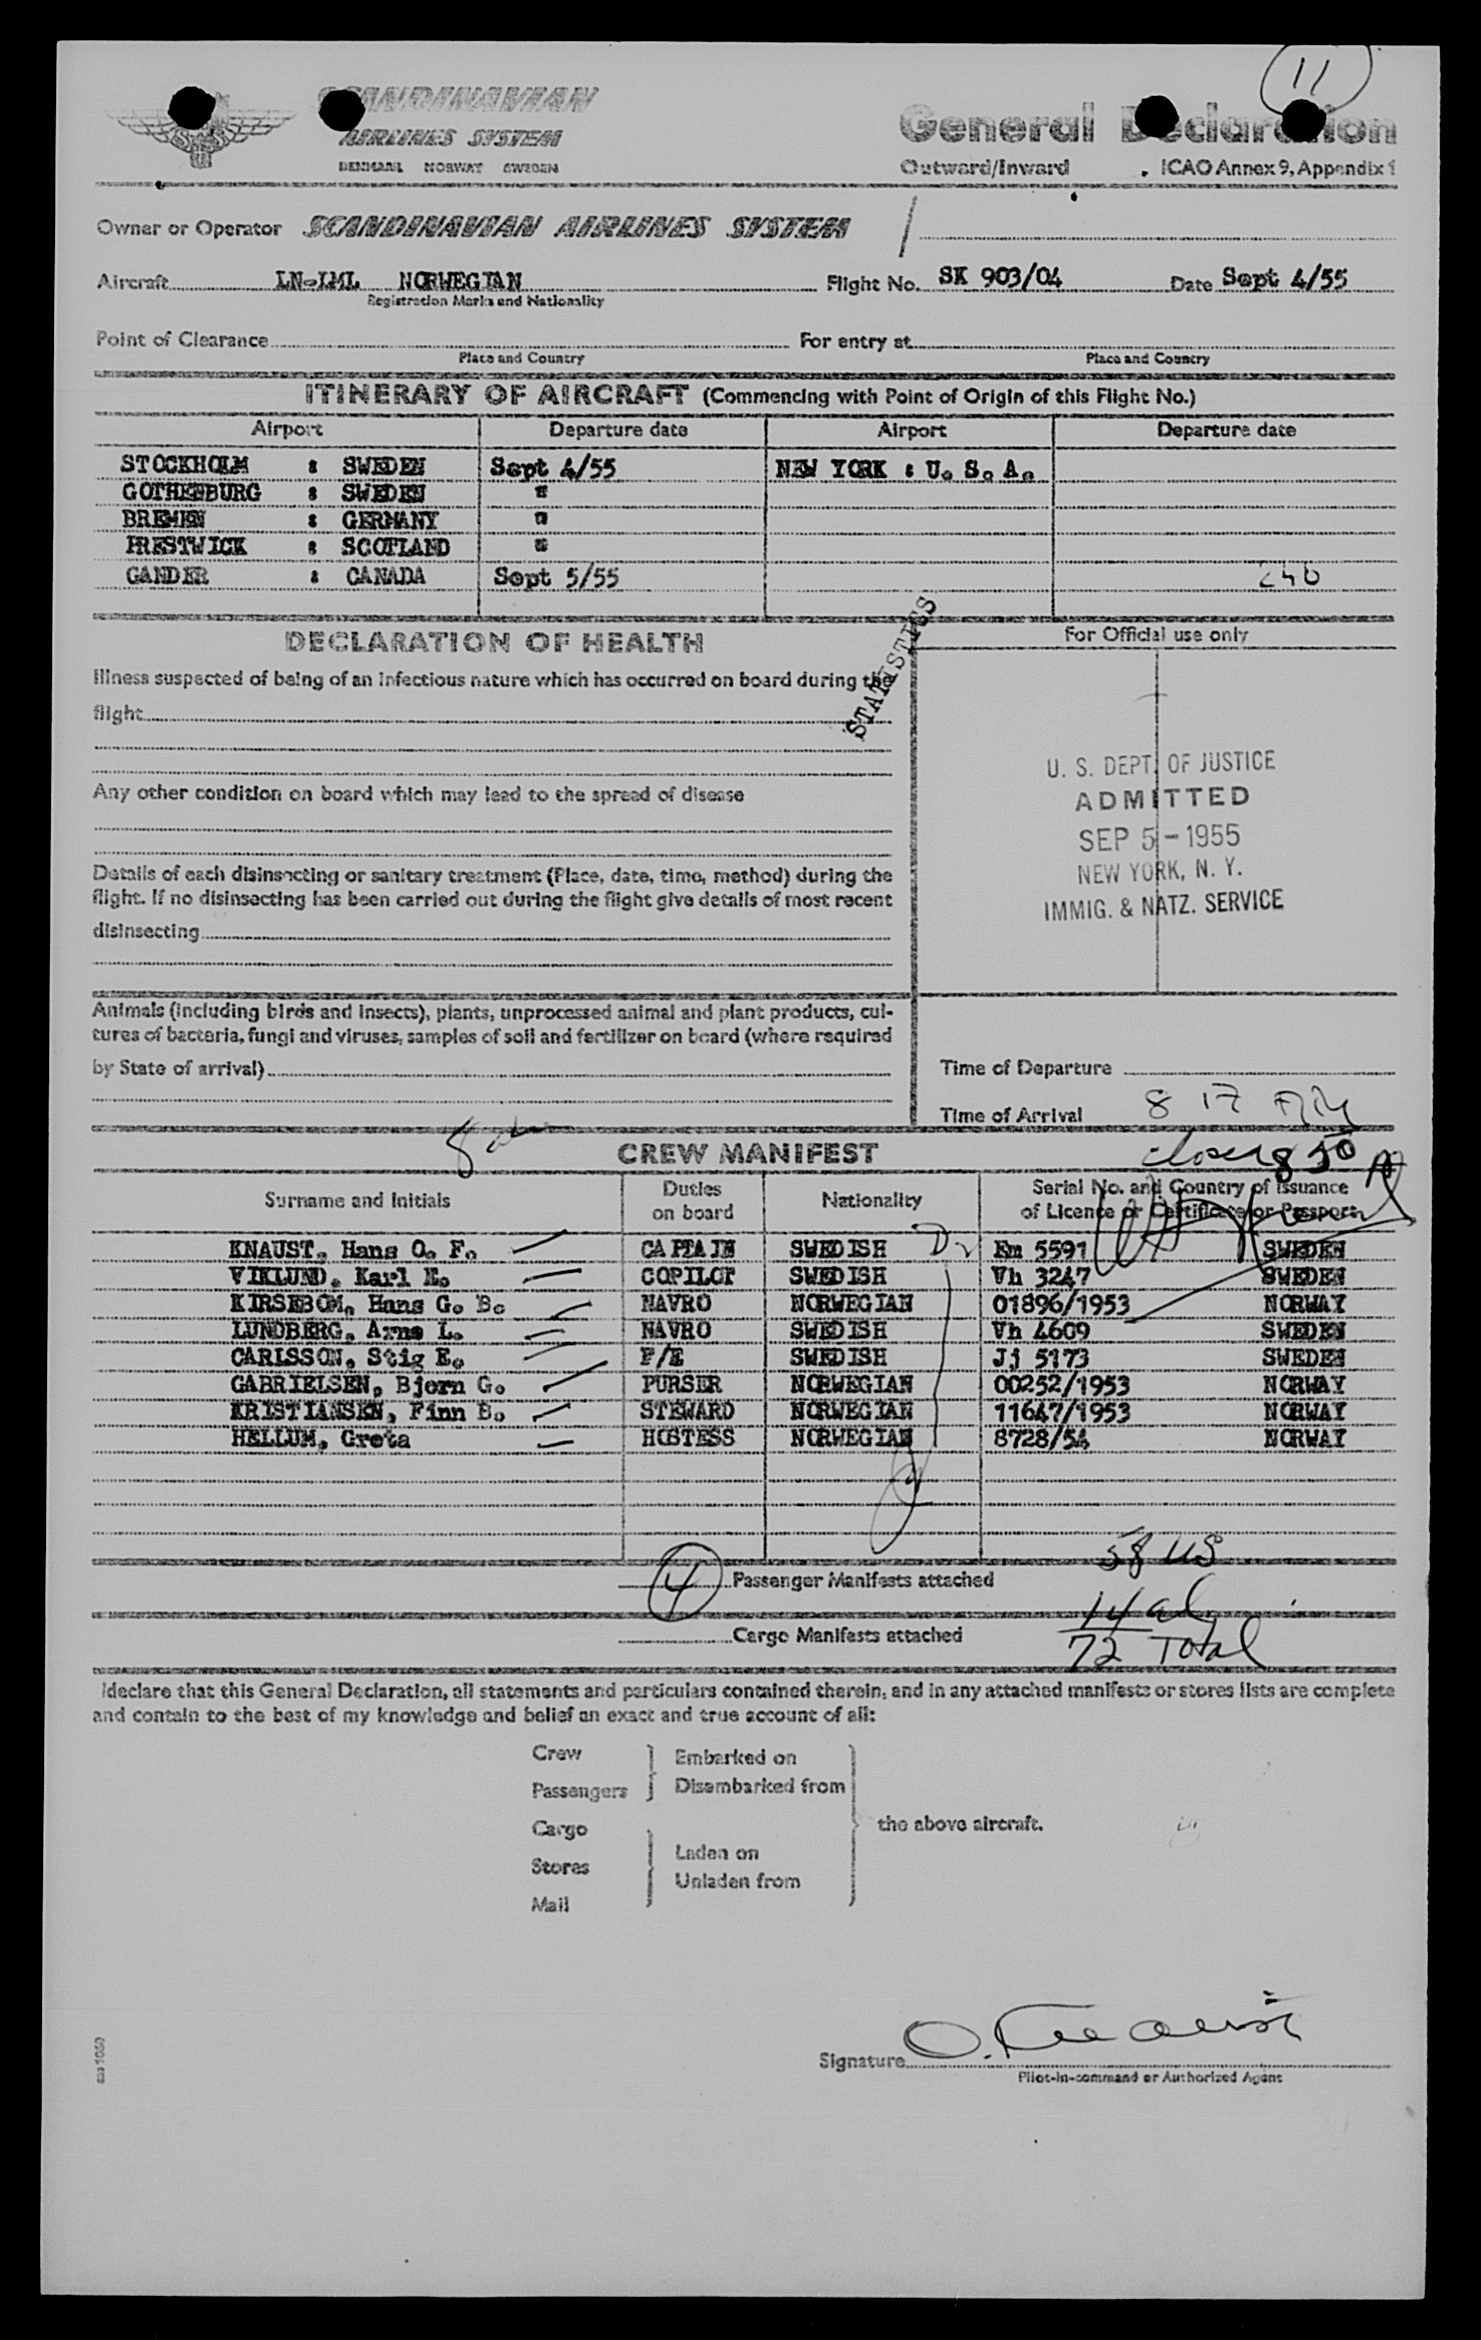 11
SCANDINAVIAN
AIRLINES SYSTEM
DENMARK NORWAY SWEDEN
General Declaration
Outward/Inward . ICAO Annex 9, Appendix 1
Owner or Operator SCANDINAVIAN AIRLINES SYSTEM
Aircraft LN-LML NORWEGIAN Flight No. SK 903/04 Date Sept 4/55
Registration Marks and Nationality
Point of Clearance For entry at
Place and Country Place and Country
ITINERARY OF AIRCRAFT (Commencing with Point of Origin of this Flight No.)
Airport Departure date Airport Departure date
STOCKHOLM : SWEDEN Sept 4/55 NEW YORK : U. S. A.
GOTHENBURG : SWEDEN "
BREMEN : GERMANY "
PRESTWICK : SCOTLAND "
GANDER : CANADA Sept 5/55 240
STATISTICS
DECLARATION OF HEALTH
For Official use only
Illness suspected of being of an infectious nature which has occurred on board during the
flight
Any other condition on board which may lead to the spread of disease
Details of each disinsecting or sanitary treatment (Place, date, time, method) during the
flight. If no disinsecting has been carried out during the flight give details of most recent
disinsecting
U. S. DEPT. OF JUSTICE
ADMITTED
SEP 5 - 1955
NEW YORK, N. Y.
IMMIG. & NATZ. SERVICE
Animals (including birds and insects), plants, unprocessed animal and plant products, cul-
tures of bacteria, fungi and viruses, samples of soil and fertilizer on board (where required
by State of arrival)
Time of Departure
Time of Arrival 8 17 AM
closed 8 50
CREW MANIFEST
Surname and Initials Duties on board Nationality Serial No. and Country of Issuance of Licence or Certificate or Passport
KNAUST, Hans O. F. CAPTAIN SWEDISH Em 5591 SWEDEN
VIKLUND, Karl E. COPILOT SWEDISH Vh 3247 SWEDEN
KIRSEBOM, Hans G. B. NAVRO NORWEGIAN 01896/1953 NORWAY
LUNDBERG, Arne L. NAVRO SWEDISH Vh 4609 SWEDEN
CARLSSON, Stig E. F/E SWEDISH Jj 5173 SWEDEN
GABRIELSEN, Bjorn G. PURSER NORWEGIAN 00252/1953 NORWAY
KRISTIANSEN, Finn B. STEWARD NORWEGIAN 11647/1953 NORWAY
HELLUM, Greta HOSTESS NORWEGIAN 8728/54 NORWAY
58 US
4 Passenger Manifests attached
14 al
Cargo Manifests attached
72 Total
I declare that this General Declaration, all statements and particulars contained therein, and in any attached manifests or stores lists are complete
and contain to the best of my knowledge and belief an exact and true account of all:
Crew Embarked on
Passengers Disembarked from
Cargo the above aircraft.
Stores Laden on
Unladen from
Mail
Signature O. Knaust
Pilot-in-command or Authorized Agent